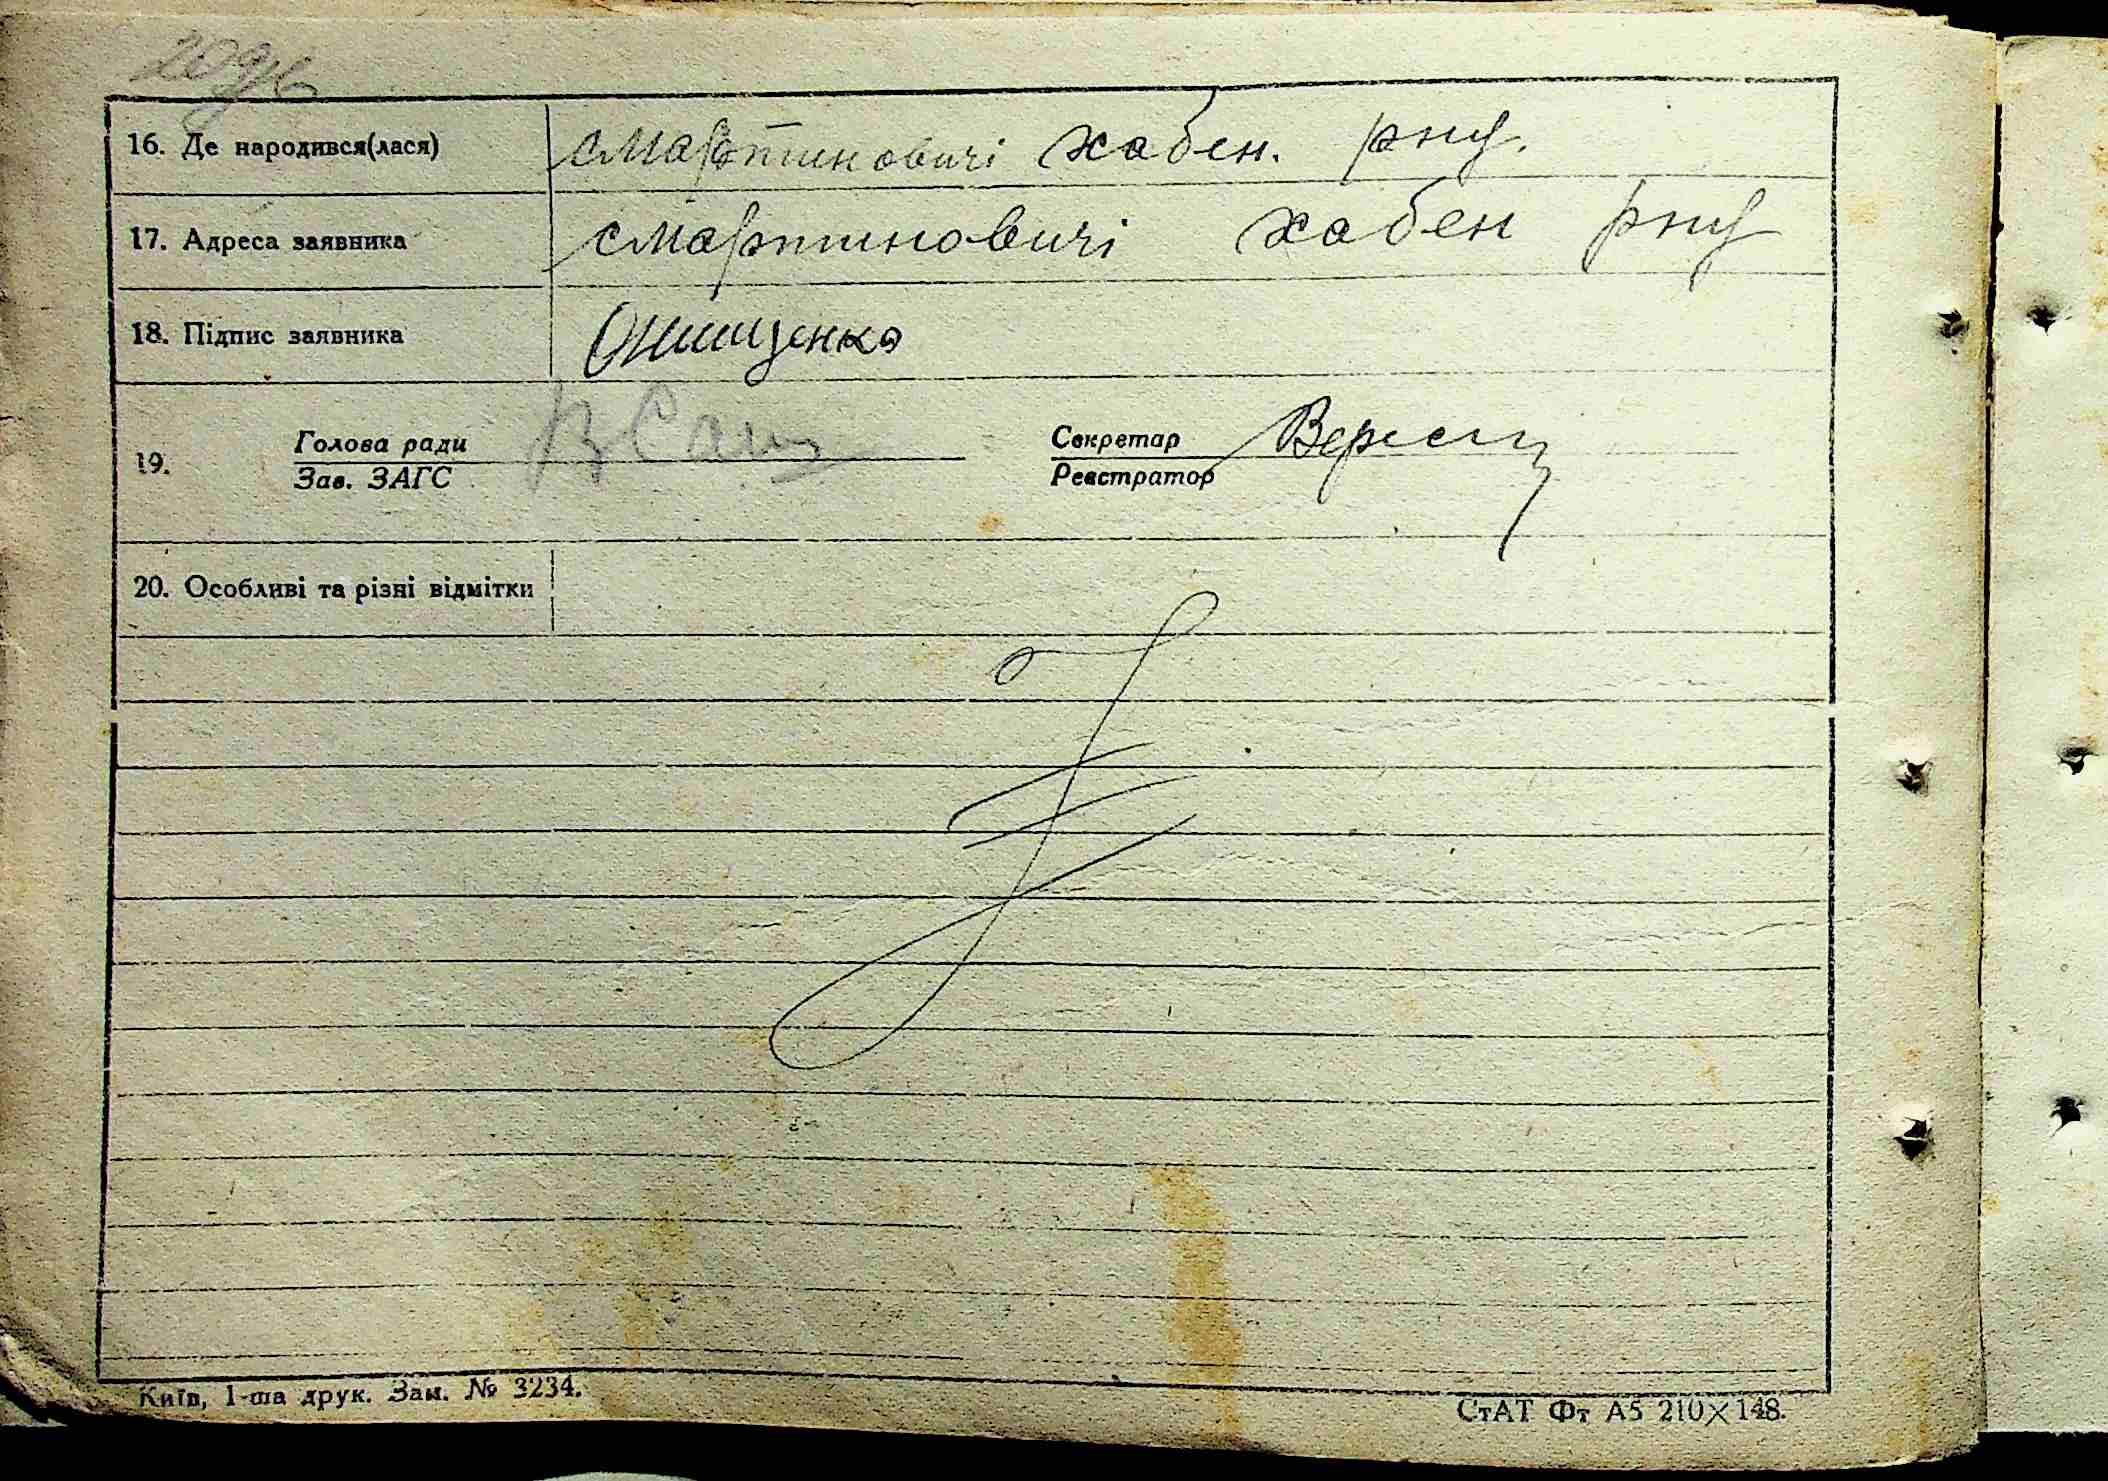 16. Де народився(лася) с. Мартиновичі хабен. рну.
17. Адреса заявника с. Мартиновичі хабен рну
18. Підпис заявника Онищенко
19. Голова ради Секретар
Зав. ЗАГС Реєстратор
20. Особливі та різні відмітки
Київ, 1-ша друк. Зам. № 3234. СтАТ Фт А5 210×148.